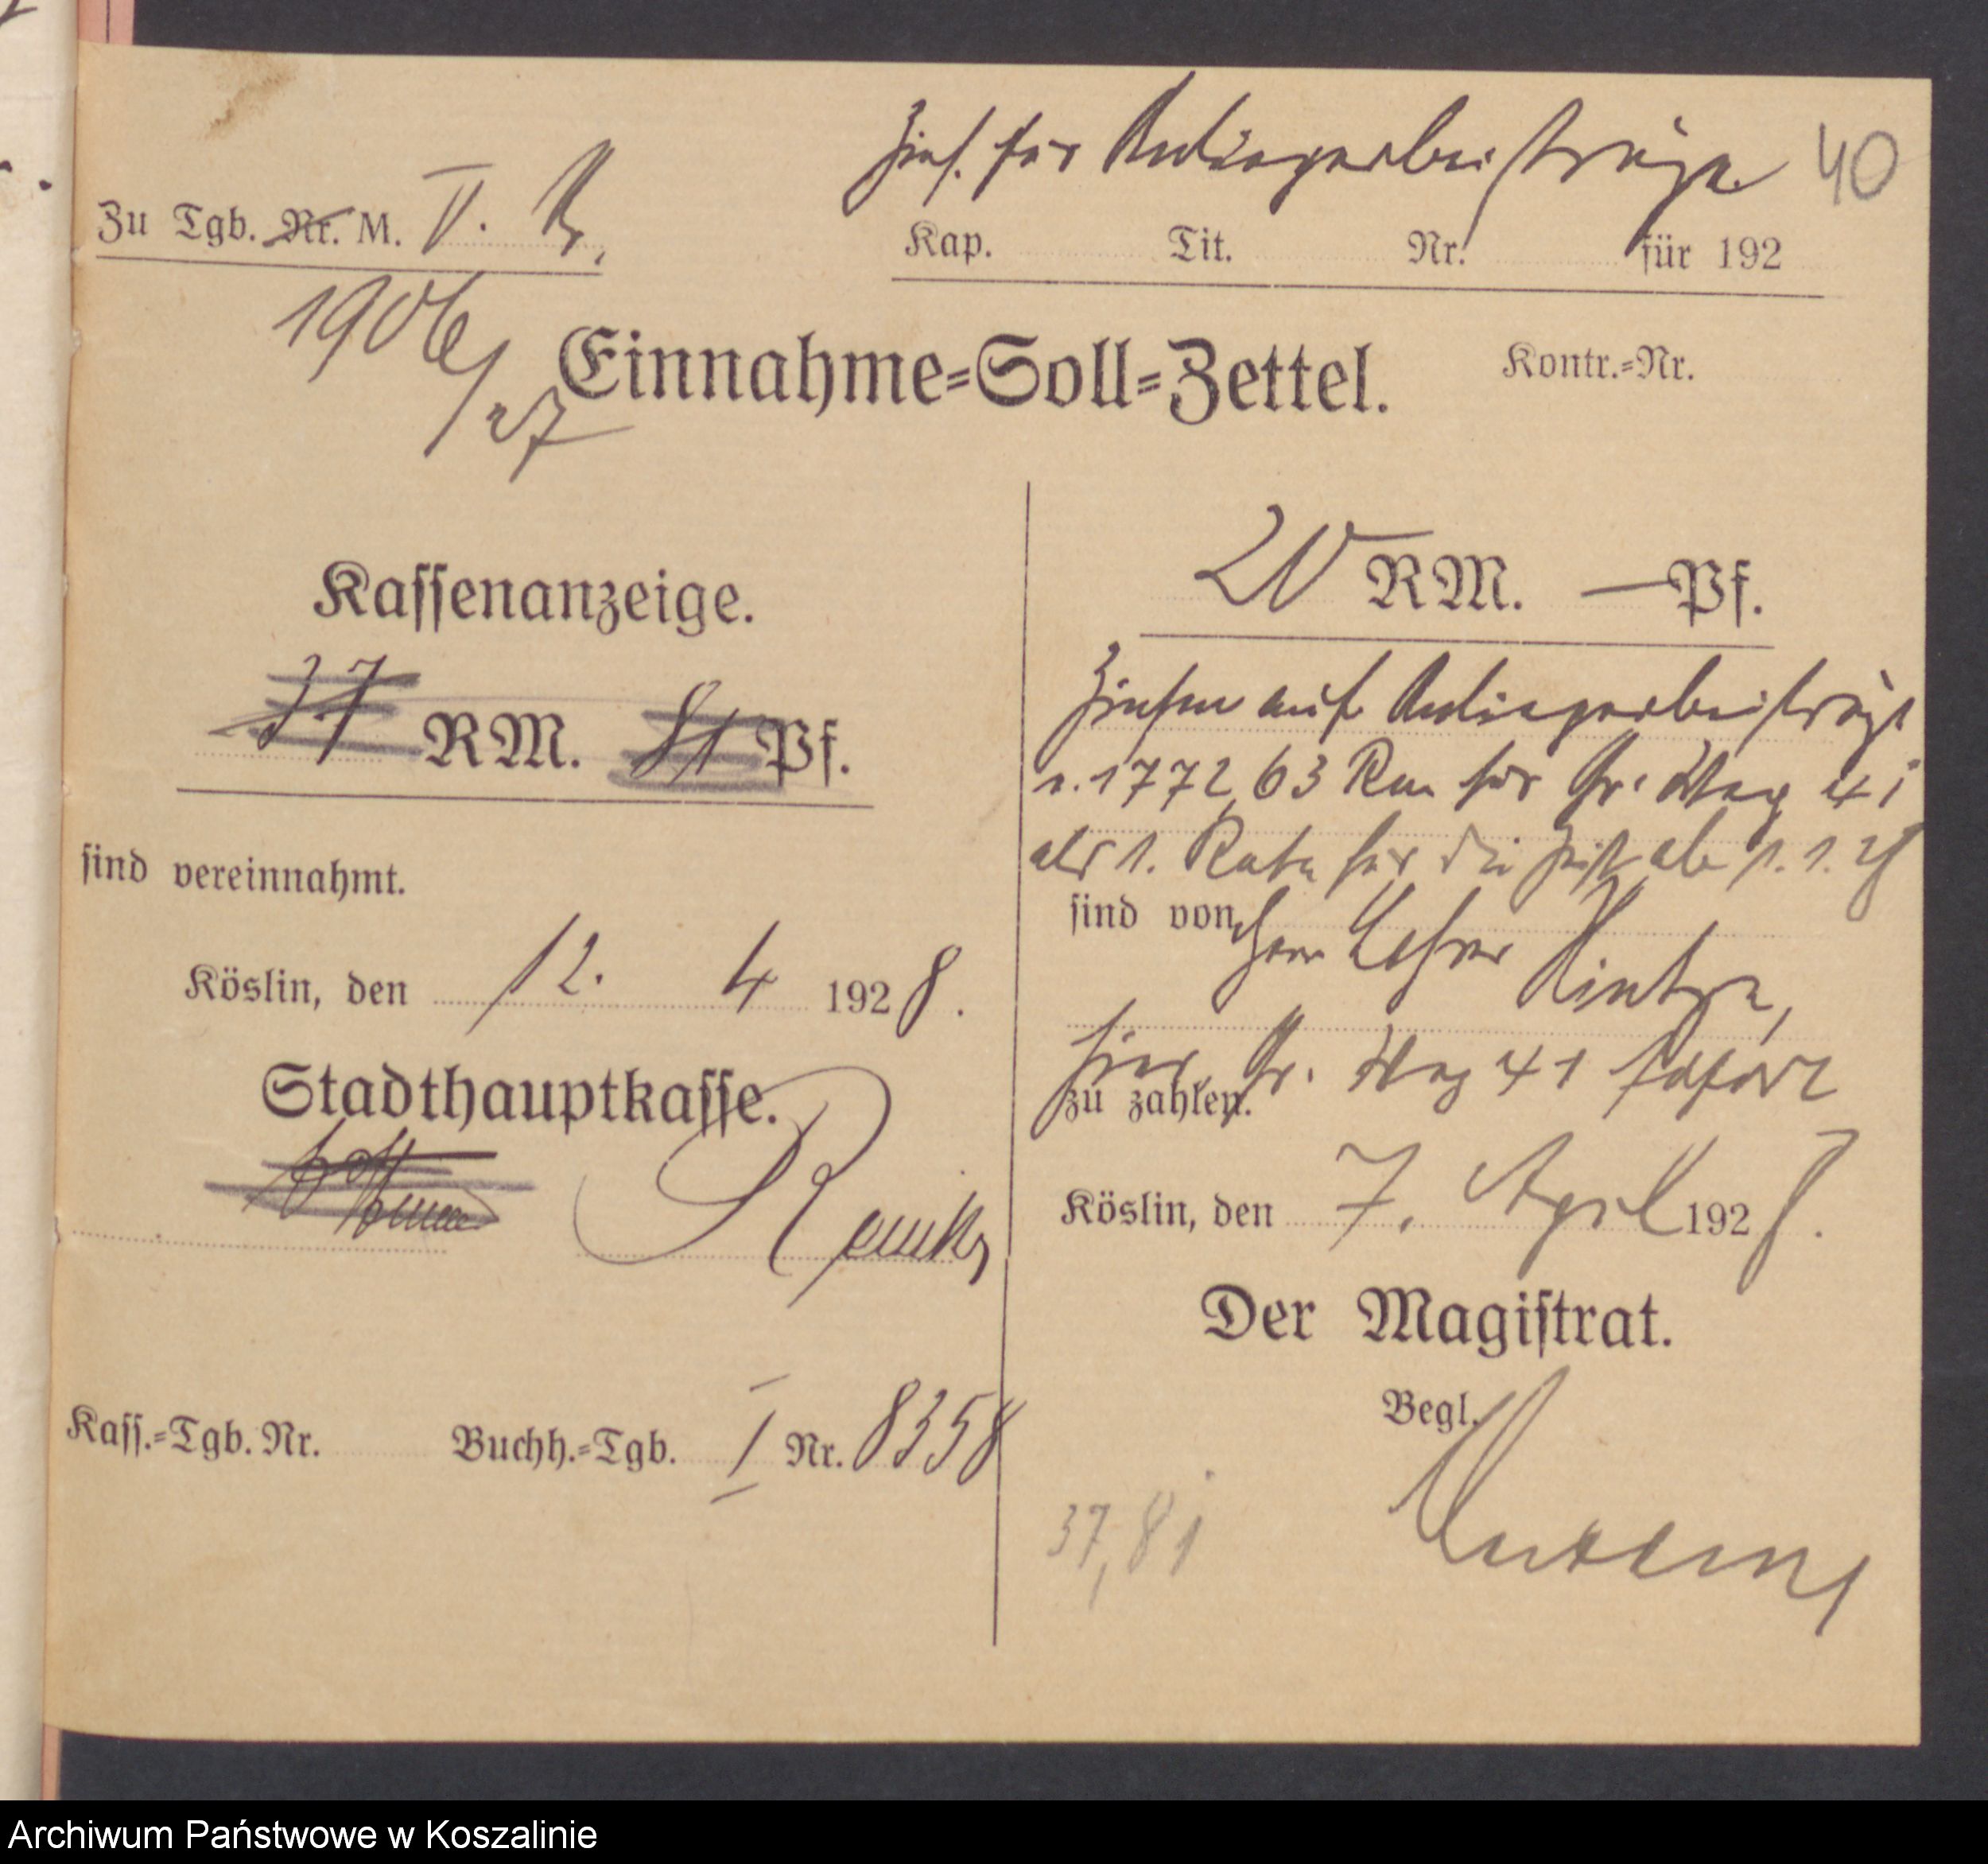 Zins. für Anliegerbeiträge. 40
Zu Tgb. Nr. M. V.
Kap. Tit. Nr. für 192
1906/27
Einnahme-Soll-Zettel. Kontr.-Nr.
Kassenanzeige.
37 RM. 81 Pf.
sind vereinnahmt.
Köslin, den 12. 4 1928.
Stadthauptkasse.
Kass.-Tgb. Nr. Buchh.-Tgb. I Nr. 8358
20 RM. — Pf.
Zinsen auf Anliegerbeiträge
v. 1772,63 Rm für Gr. Weg 41
als 1. Rate für die Zeit ab 1. 1. 28
sind von Herrn Lehrer Hintze,
hier, Gr. Weg 41 sofort
zu zahlen.
Köslin, den 7. April 1928.
Der Magistrat.
Begl.
37,81
Archiwum Państwowe w Koszalinie